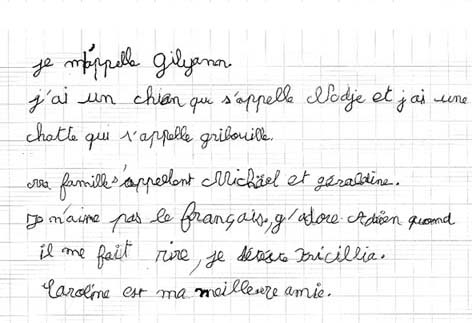 je m'appelle Gilyanon.
j'ai un chien qui s'appelle Nodje et j'ai une
chatte qui s'appelle gribouille.
ma famille s'appellent Michäel et géraldine.
Je n'aime pas le français, j'adore Adrien quand
il me fait rire, je déteste
Caroline est ma meilleure amie.